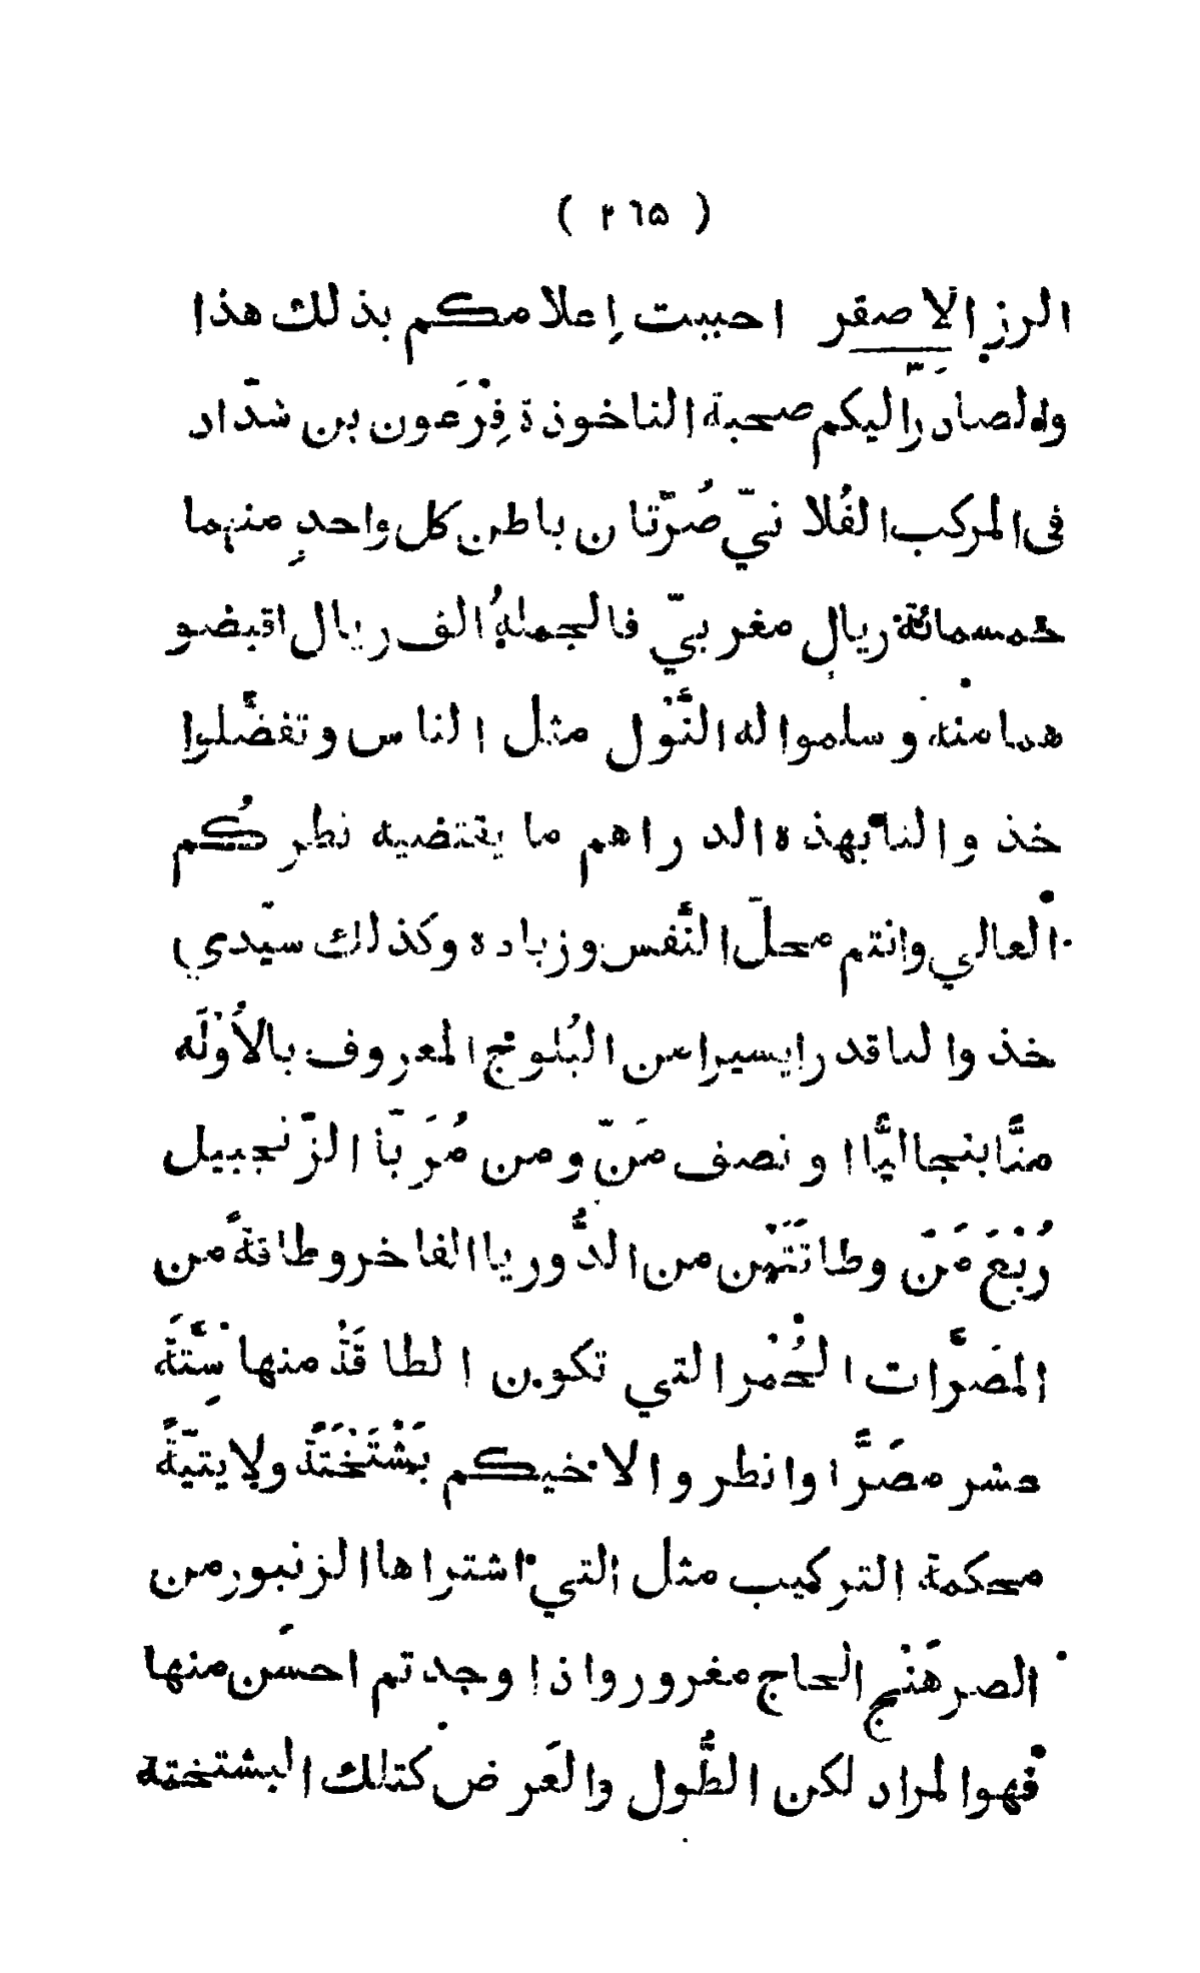 ( ٢٦٥ )
الرز الاصقر احببت إعلامكم بذلك هذا
والصادر اليكم صحبة الناخوذة فِرْعَون بن شدّاد
فى المركب الفُلانيّ صُرّتان باطن كل واحدٍ منهما
خمسمائة ريالٍ مغربيّ فالجملةُ الف ريال اقبضو
هما منْه وسلموا له النَّوْل مثل الناس وتفضَّلوا
خذوا لنا بهذه الدراهم ما يقتضيه نظركُم
العالي وانتم محلّ النَّفس وزيادة وكذلك سيّدي
خذوا لنا قدرا يسيرا من البُلوج المعروف بالأَوْلَه
منًّا بنجاليًّا او نصف مَنّ ومن مُرَبّا الزّنجبيل
رُبْعَ مَنّ وطاقَتَيْن من الدُّوريا الفاخر وطاقةً من
المَصَرَّات الحُمْر التي تكون الطاقَةُ منها سِتَّةَ
عشر مصَرًّا وانظروا لاخيكم بَشْتَخْتَةً ولايتيّةً
محكمة التركيب مثل التي اشتراها الزنبور من
الصرهَنْج الحاج مغرور واذا وجدتم احسَن منها
فهو المراد لكن الطُّول والعَرْض كتلك البشتخته